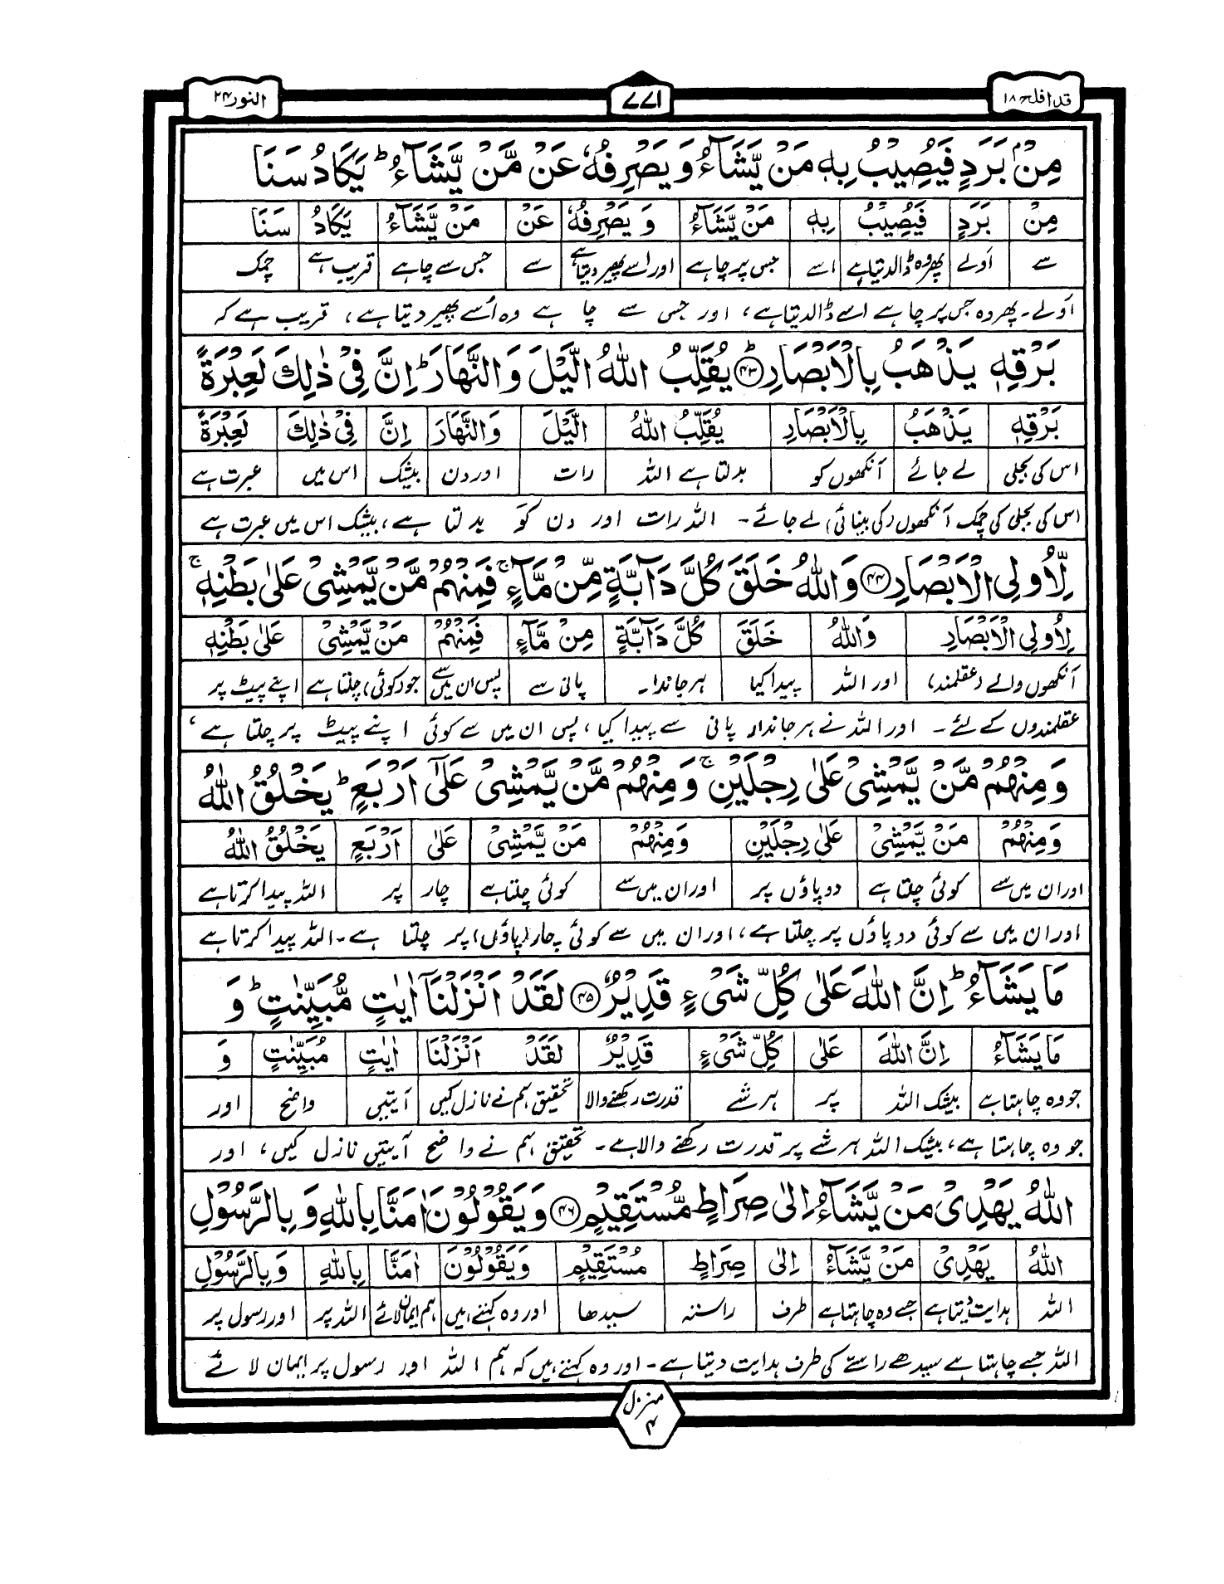 قد افلح ۱۸
۷۷۱
النور ۲۴
مِنْۢ بَرَدٍ فَیُصِیْبُ بِهٖ مَنْ یَّشَآءُ وَ یَصْرِفُهٗ عَنْ مَّنْ یَّشَآءُ ؕ یَكَادُ سَنَا
مِنْ بَرَدٍ فَیُصِیْبُ بِهٖ مَنْ یَّشَآءُ وَ یَصْرِفُهٗ عَنْ مَنْ یَّشَآءُ یَكَادُ سَنَا
سے اَولے پھر وہ ڈالدیتا ہے اسے جس پر چاہے اور اسے پھیر دیتا ہے سے جس سے چاہے قریب ہے چمک
اَولے۔ پھر وہ جس پر چاہے اسے ڈالدیتا ہے، اور جس سے چاہے وہ اُسے پھیر دیتا ہے، قریب ہے کہ
بَرْقِهٖ یَذْهَبُ بِالْاَبْصَارِ ﴿۴۳﴾ یُقَلِّبُ اللّٰهُ الَّیْلَ وَ النَّهَارَ ؕ اِنَّ فِیْ ذٰلِكَ لَعِبْرَةً
بَرْقِهٖ یَذْهَبُ بِالْاَبْصَارِ یُقَلِّبُ اللّٰهُ الَّیْلَ وَالنَّهَارَ اِنَّ فِیْ ذٰلِكَ لَعِبْرَةً
اس کی بجلی لے جائے آنکھوں کو بدلتا ہے اللہ رات اور دن بیشک اس میں عبرت ہے
اس کی بجلی کی چمک آنکھوں (کی بینائی) لے جائے۔ اللہ رات اور دن کو بدلتا ہے، بیشک اس میں عبرت ہے
لِّاُولِی الْاَبْصَارِ ﴿۴۴﴾ وَاللّٰهُ خَلَقَ كُلَّ دَآبَّةٍ مِّنْ مَّآءٍ ۚ فَمِنْهُمْ مَّنْ یَّمْشِیْ عَلٰی بَطْنِهٖ ۚ
لِاُولِی الْاَبْصَارِ وَاللّٰهُ خَلَقَ كُلَّ دَآبَّةٍ مِنْ مَّآءٍ فَمِنْهُمْ مَنْ یَّمْشِیْ عَلٰی بَطْنِهٖ
آنکھوں والے (عقلمند) اور اللہ پیدا کیا ہر جاندار۔ پانی سے پس ان میں سے جو (کوئی) چلتا ہے اپنے پیٹ پر
عقلمندوں کے لئے۔ اور اللہ نے ہر جاندار پانی سے پیدا کیا، پس ان میں سے کوئی اپنے پیٹ پر چلتا ہے،
وَمِنْهُمْ مَّنْ یَّمْشِیْ عَلٰی رِجْلَیْنِ ۚ وَمِنْهُمْ مَّنْ یَّمْشِیْ عَلٰۤی اَرْبَعٍ ؕ یَخْلُقُ اللّٰهُ
وَمِنْهُمْ مَنْ یَّمْشِیْ عَلٰی رِجْلَیْنِ وَمِنْهُمْ مَنْ یَّمْشِیْ عَلٰی اَرْبَعٍ یَخْلُقُ اللّٰهُ
اور ان میں سے کوئی چلتا ہے دو پاؤں پر اور ان میں سے کوئی چلتا ہے چار پر اللہ پیدا کرتا ہے
اور ان میں سے کوئی دو پاؤں پر چلتا ہے، اور ان میں سے کوئی چار (پاؤں) پر چلتا ہے۔ اللہ پیدا کرتا ہے
مَا یَشَآءُ ؕ اِنَّ اللّٰهَ عَلٰی كُلِّ شَیْءٍ قَدِیْرٌ ﴿۴۵﴾ لَقَدْ اَنْزَلْنَاۤ اٰیٰتٍ مُّبَیِّنٰتٍ ؕ وَ
مَا یَشَآءُ اِنَّ اللّٰهَ عَلٰی كُلِّ شَیْءٍ قَدِیْرٌ لَقَدْ اَنْزَلْنَا اٰیٰتٍ مُبَیِّنٰتٍ وَ
جو وہ چاہتا ہے بیشک اللہ پر ہر شے قدرت رکھنے والا تحقیق ہم نے نازل کیں آیتیں واضح اور
جو وہ چاہتا ہے، بیشک اللہ ہر شے پر قدرت رکھنے والا ہے۔ تحقیق ہم نے واضح آیتیں نازل کیں، اور
اللّٰهُ یَهْدِیْ مَنْ یَّشَآءُ اِلٰی صِرَاطٍ مُّسْتَقِیْمٍ ﴿۴۶﴾ وَیَقُوْلُوْنَ اٰمَنَّا بِاللّٰهِ وَ بِالرَّسُوْلِ
اللّٰهُ یَهْدِیْ مَنْ یَّشَآءُ اِلٰی صِرَاطٍ مُسْتَقِیْمٍ وَیَقُوْلُوْنَ اٰمَنَّا بِاللّٰهِ وَبِالرَّسُوْلِ
اللہ ہدایت دیتا ہے جسے وہ چاہتا ہے طرف راستہ سیدھا اور وہ کہتے ہیں ہم ایمان لائے اللہ پر اور رسول پر
اللہ جسے چاہتا ہے سیدھے راستے کی طرف ہدایت دیتا ہے۔ اور وہ کہتے ہیں کہ ہم اللہ اور رسول پر ایمان لائے
منزل
۴